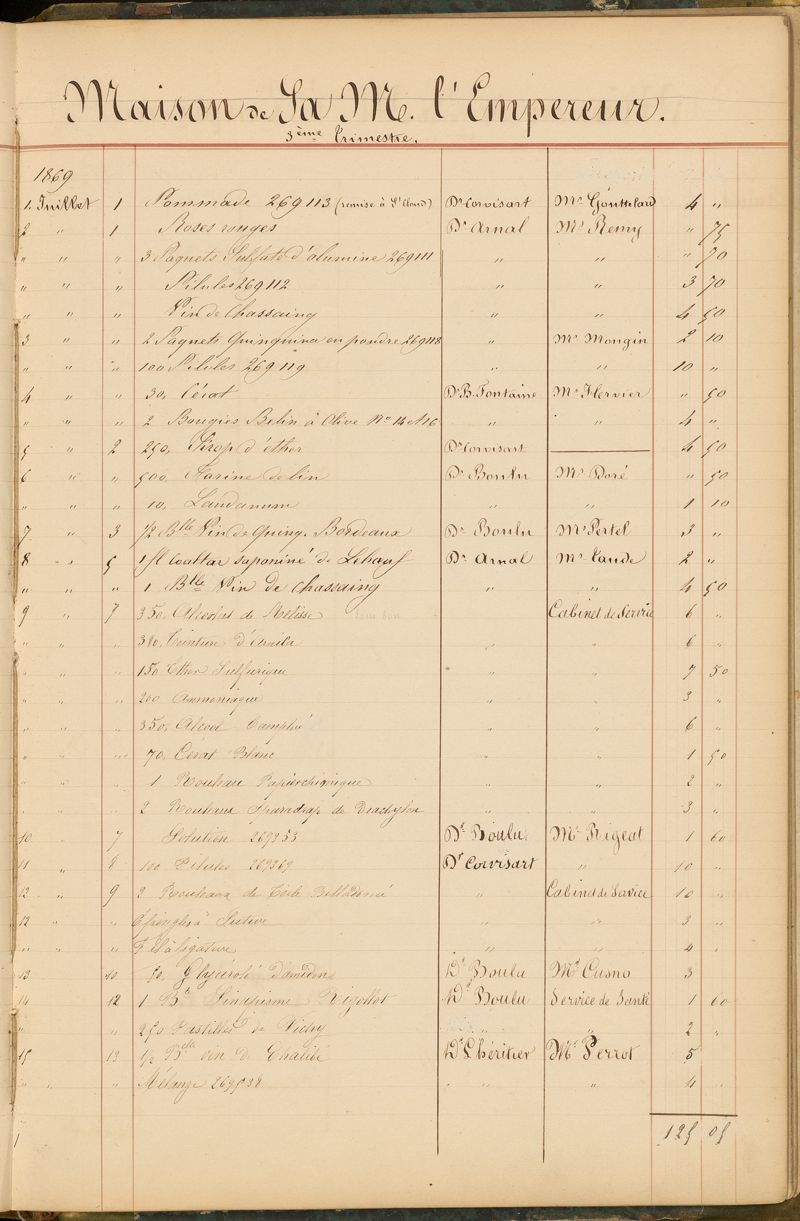 Maison de Sa Mé. l'Empereur.
3ème Trimestre.
1869
1. Juillet 1 Pommade 269113 (remise à St Cloud) Dr Corvisart Mr Gouttelard 4 "
2 " 1 Roses rouges Dr Arnal Mr Remy " 75
" " " 3 Paquets Sulfate d'alumine 269111 " " " 70
" " " Pilules 269112 " " 3 70
" " " Vin de Chassaing " " 4 50
3 " " 2 Paquets Quinquina en poudre 269118 " Mr Mongin 2 10
" " " 100 Pilules 269119 " " 10 "
4 " " 30, Cérat Dr B. Fontaine Mr Hervier " 50
" " " 2 Bougies à Olive No 14 et 16 " " 4 "
5 " 2 250, Sirop d'éther Dr Corvisart 4 50
6 " " 500, Farine de lin Dr Boulu Mr Doré " 50
" " " 10, Laudanum " " 1 10
7 " 3 1/2 Blle Vin de Quinq. Bordeaux Dr Boulu Mr Pertel 3 "
8 " 5 1 fl Coaltar saponiné de Lebeuf Dr Arnal Mr Caude 2 "
" " " 1 Blle Vin de Chassaing " " 4 50
9 " 7 350, Alcoolat de Mélisse Cabinet de Service 6 "
" " " Teinture d'Arnica " 6 "
" " " 150 Ether Sulfurique " " 7 50
" " " 200 Ammoniaque " " 3 "
" " " 350, Alcool Camphré " " 6 "
" " " 70, Cerat Blanc " " 1 50
" " " 1 Rouleau Papier chimique " " 2 "
" " " 2 Rouleaux Sparadrap de Diachylon " " 3 "
10 7 Solution 269353 Dr Boulu Mr Rigeat 1 60
11 " 8 100 Pilules 269369 Dr Corvisart " 10 "
12 " 9 2 Rouleaux de Toile " Cabinet de Service 10 "
12 " " Epingles à Suture " " 3 "
" " " Fil à ligature " " 4 "
13 10 50, Glycérolé d'amidon Dr Boulu Mr Cusno 3
14 12 1 Bte Sinapisme Rigollot Dr Boulu Service de Santé 1 60
" " 250 Pastilles de Vichy " " 2 "
15 13 1/2 Blle vin de Chalibé Dr Lhéritier Mr Perrot 5
" " " Mélange 269538 " " 4 "
125 05